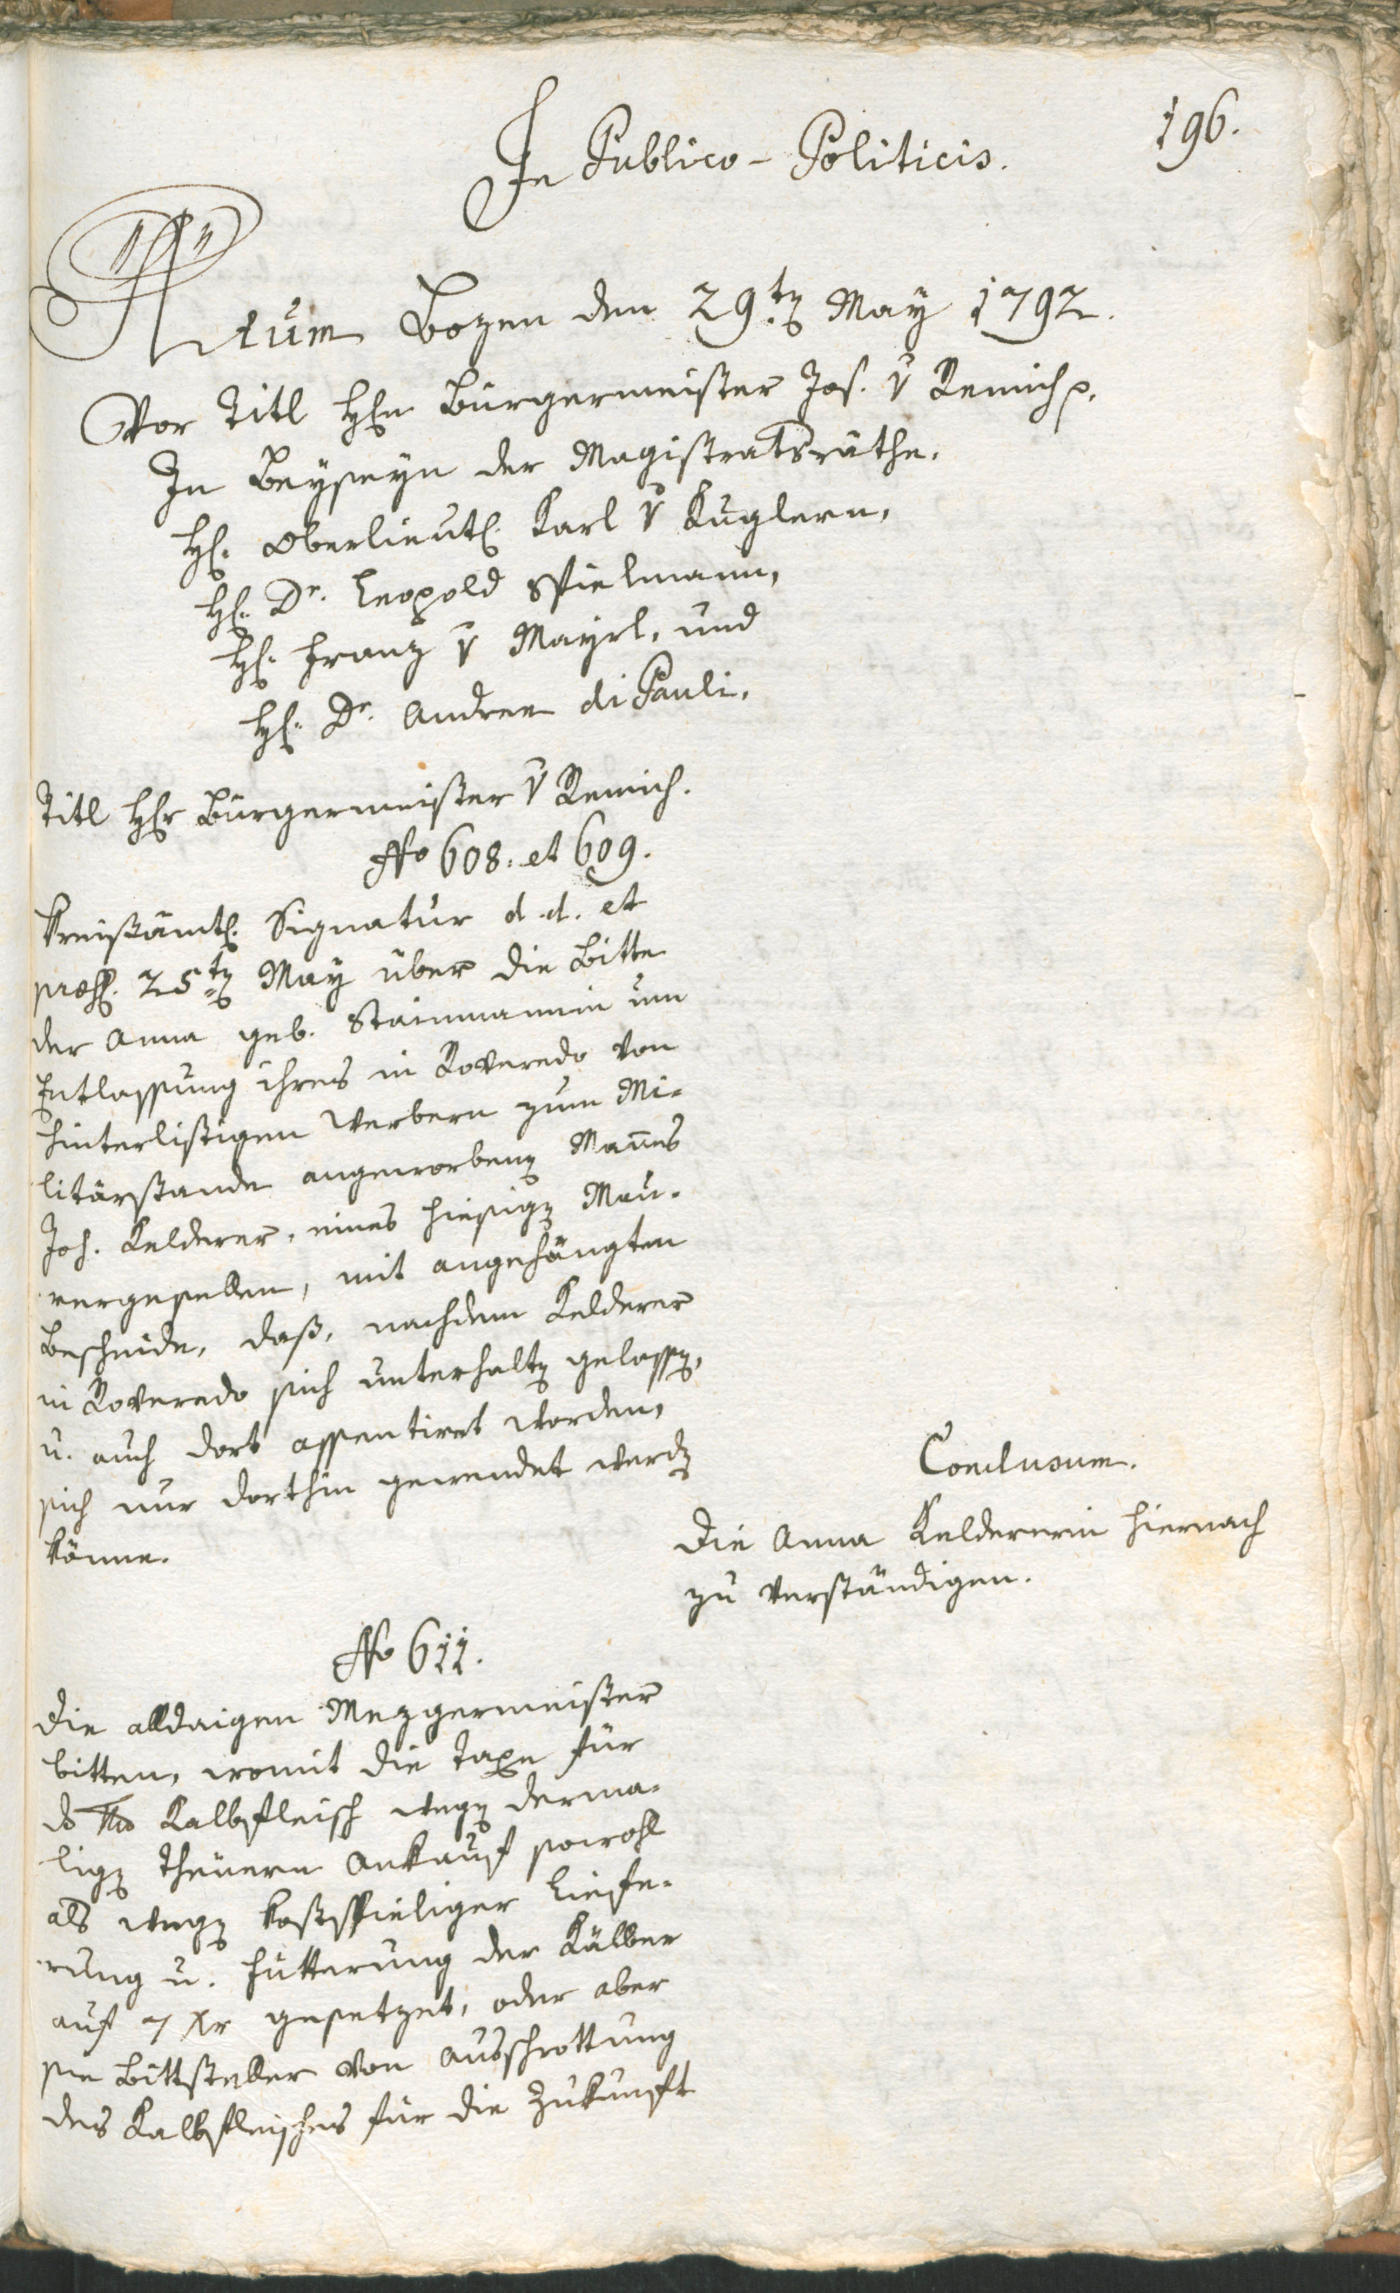 196.
In Publico-Politicis.
Actum Bozen den 29ten May 1792.
Vor Titl Hrn Bürgermeister Jos. v Remich p.
In Beyseyn der Magistratsräthe.
H. Oberlieut. Karl v Kuglern,
H. Dr. Leopold Spielmann,
H. Franz v Mayrl, und
H. Dr. Andree di Pauli.
Titl Hr Bürgermeister v Remich.
No 608. et 609.
Kreißämtl. Signatur d. d. et
præs. 25ten May über die Bitte
der Anna geb. Stainmannin um
Entlassung ihres in Roveredo von
hinterlistigen Werbern zum Mi-
litärstande angeworbenen Mañes
Joh. Kelderer, eines hiesigen Mau-
rergesellen, mit angehängten
Bescheide, daß, nachdem Kelderer
in Roveredo sich unterhalten gelassen,
u. auch dort assentiret worden,
sich nur dorthin gewendet werden
könne.
Conclusum.
Die Anna Keldererin hiernach
zu verständigen.
No 611.
Die alldaigen Mezgermeister
bitten, womit die Taxe für
ds Kalbfleisch wegen derma-
ligen theuern Ankauf sowohl
als wegen kostspieliger Liefe-
rung u. Fütterung der Kälber
auf 7 Xr gesetzet, oder aber
sie Bittsteller von Ausschrottung
des Kalbfleisches für die Zukunft